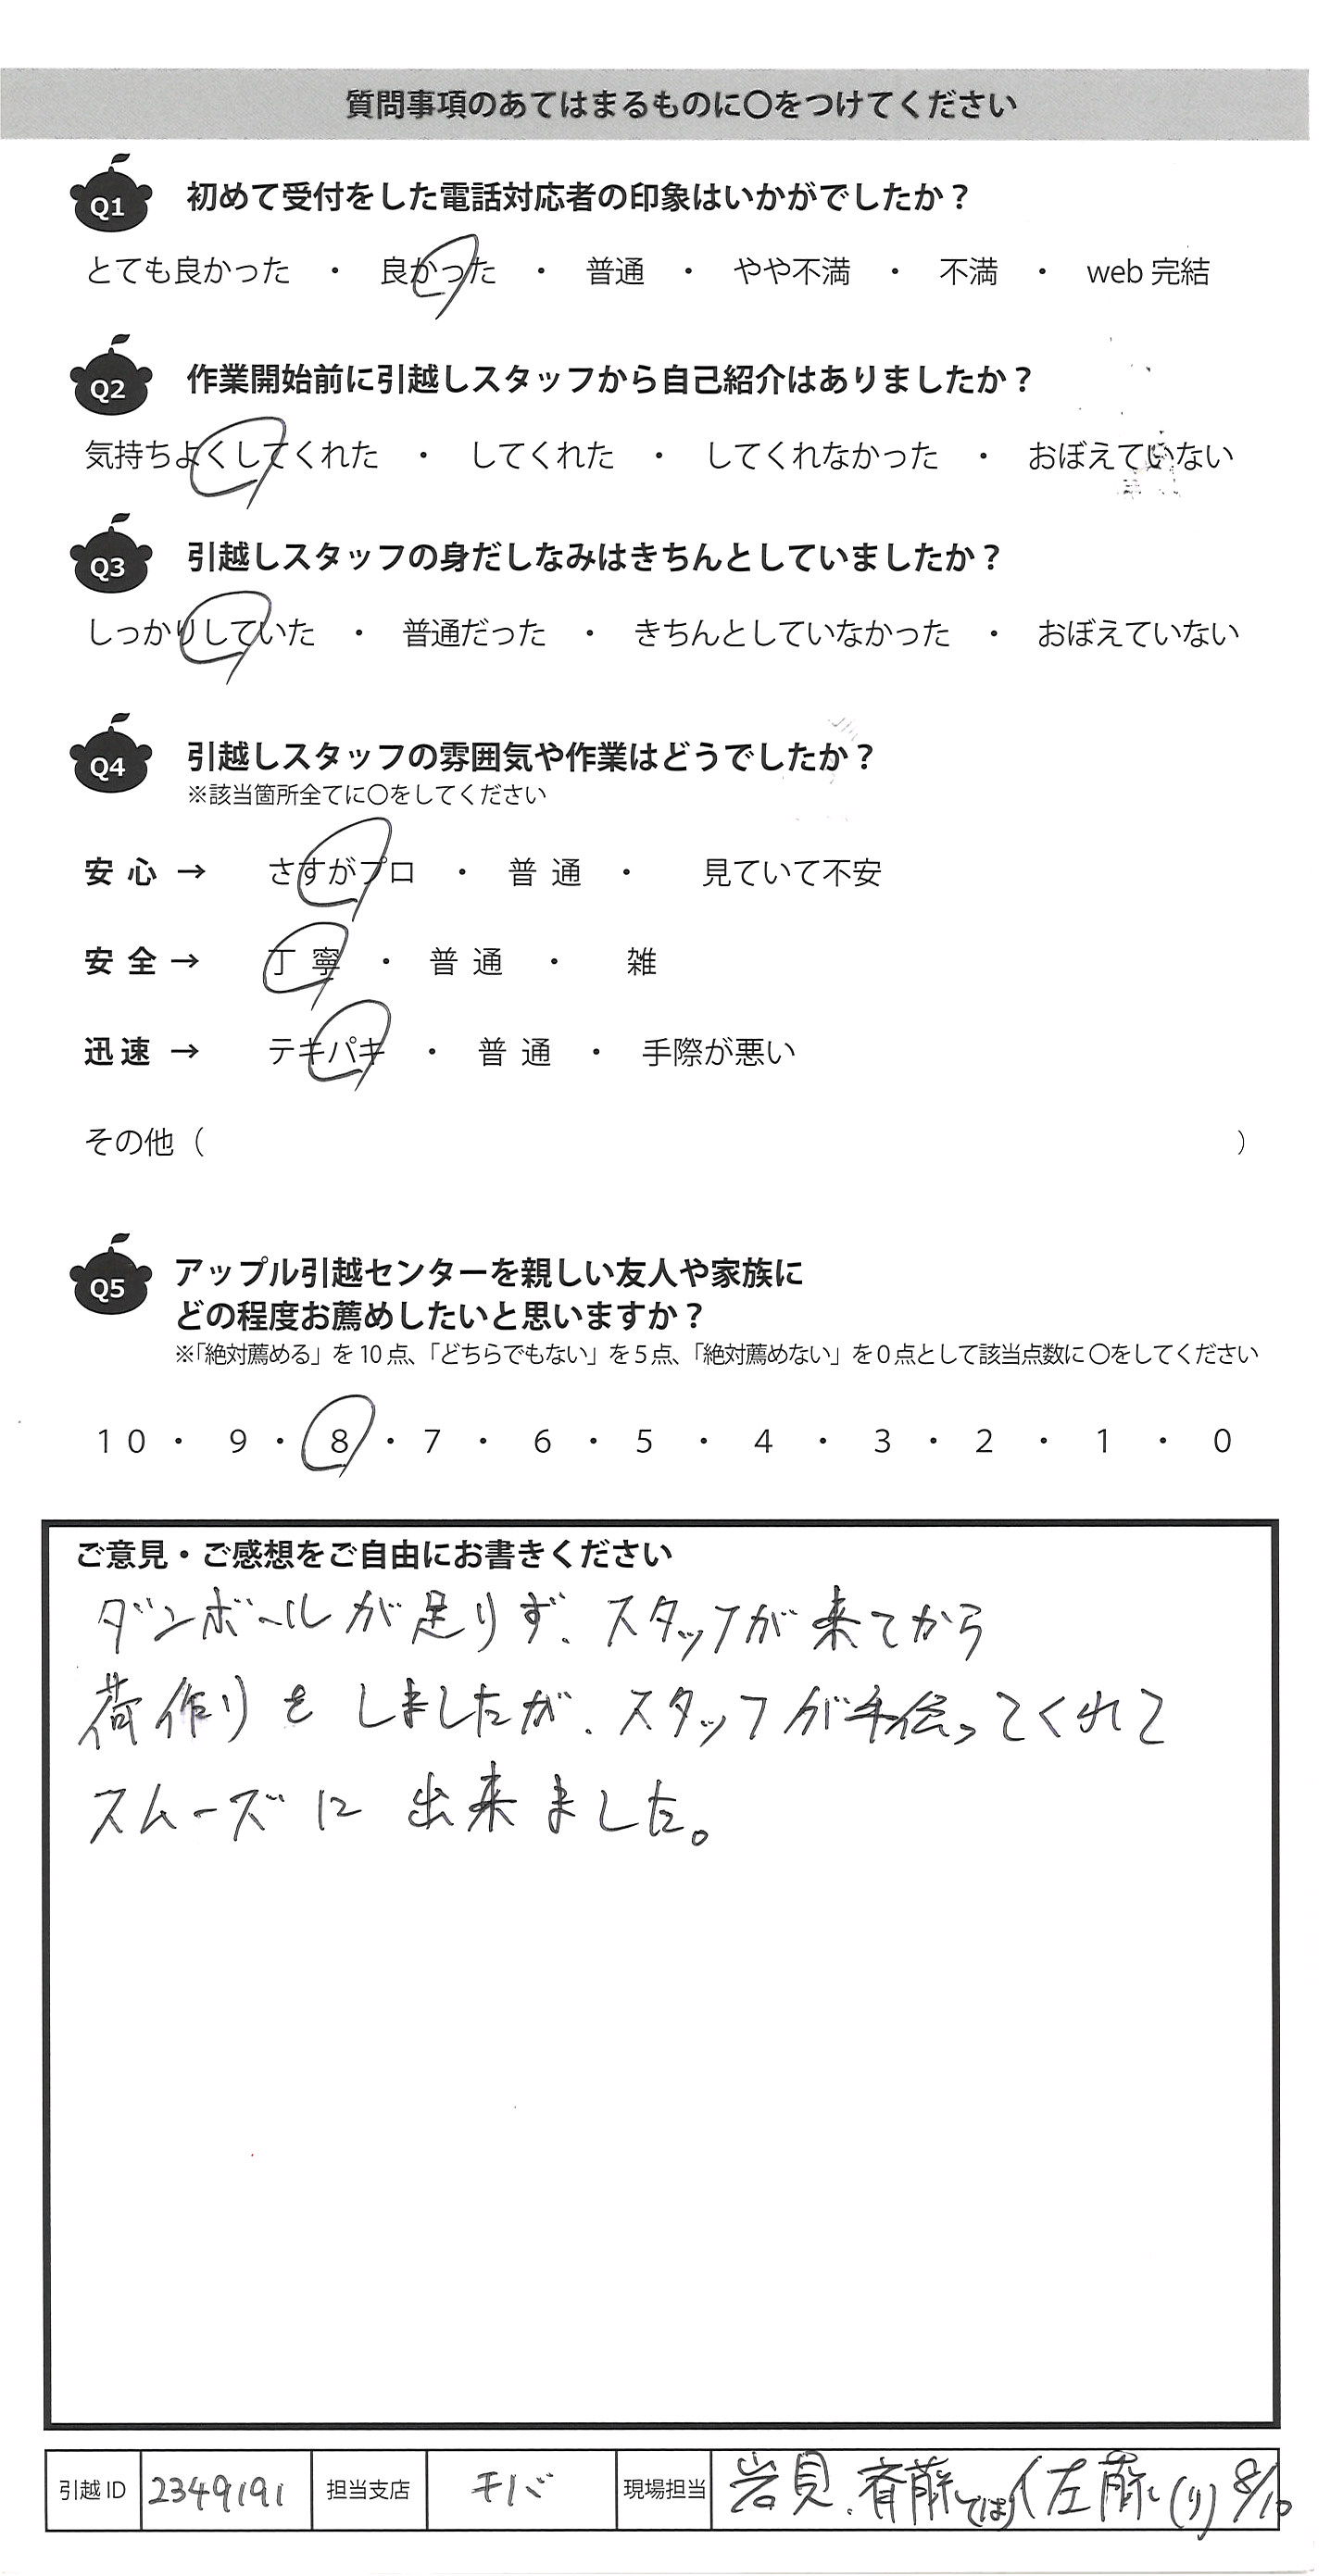 質問事項のあてはまるものに〇をつけてください
Q1 初めて受付をした電話対応者の印象はいかがでしたか？
とても良かった ・ 良かった ・ 普通 ・ やや不満 ・ 不満 ・ web 完結
Q2 作業開始前に引越しスタッフから自己紹介はありましたか？
気持ちよくしてくれた ・ してくれた ・ してくれなかった ・ おぼえていない
Q3 引越しスタッフの身だしなみはきちんとしていましたか？
しっかりしていた ・ 普通だった ・ きちんとしていなかった ・ おぼえていない
Q4 引越しスタッフの雰囲気や作業はどうでしたか？
※該当箇所全てに〇をしてください
安心 → さすがプロ ・ 普通 ・ 見ていて不安
安全 → 丁寧 ・ 普通 ・ 雑
迅速 → テキパキ ・ 普通 ・ 手際が悪い
その他（ ）
Q5 アップル引越センターを親しい友人や家族に
どの程度お薦めしたいと思いますか？
※「絶対薦める」を10点、「どちらでもない」を5点、「絶対薦めない」を0点として該当点数に〇をしてください
10 ・ 9 ・ 8 ・ 7 ・ 6 ・ 5 ・ 4 ・ 3 ・ 2 ・ 1 ・ 0
ご意見・ご感想をご自由にお書きください
ダンボールが足りず、スタッフが来てから
荷作りをしましたが、スタッフが手伝ってくれて
スムーズに出来ました。
引越ID 2349191 担当支店 キバ 現場担当 岩貝、斉藤 佐藤 (り) 8/10